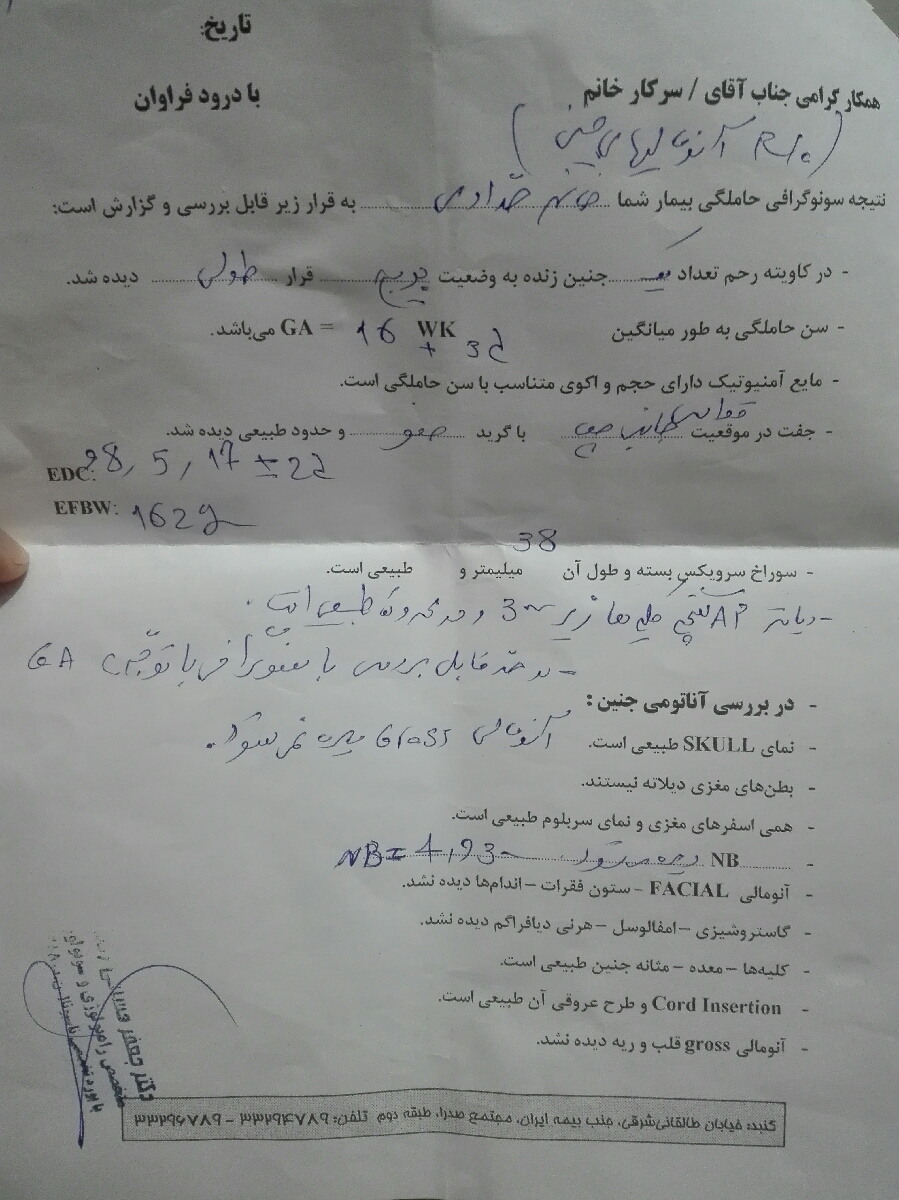 تاریخ:
با درود فراوان
همکار گرامی جناب آقای / سرکار خانم
(R/o آنومالیهای جنین)
نتیجه سونوگرافی حاملگی بیمار شما خانم به قرار زیر قابل بررسی و گزارش است:
- در کاویته رحم تعداد یک جنین زنده به وضعیت بریچ قرار طولی دیده شد.
- سن حاملگی به طور میانگین GA = 16 WK + 3d می‌باشد.
- مایع آمنیوتیک دارای حجم و اکوی متناسب با سن حاملگی است.
- جفت در موقعیت با گرید صفر و حدود طبیعی دیده شد.
EDC: 28, 5, 17 ± 2d
EFBW: 162g
- سوراخ سرویکس بسته و طول آن 38 میلیمتر و طبیعی است.
- دیامتر AP لگنچه کلیه‌ها زیر 3mm و در محدوده طبیعی است.
- در حد قابل بررسی با سونوگرافی با توجه به GA
آنومالی Gross دیده نمی‌شود.
- در بررسی آناتومی جنین:
- نمای SKULL طبیعی است.
- بطن‌های مغزی دیلاته نیستند.
- همی اسفرهای مغزی و نمای سربلوم طبیعی است.
- NB دیده می‌شود NB = 4,93mm
- آنومالی FACIAL - ستون فقرات - اندام‌ها دیده نشد.
- گاستروشیزی - امفالوسل - هرنی دیافراگم دیده نشد.
- کلیه‌ها - معده - مثانه جنین طبیعی است.
- Cord Insertion و طرح عروقی آن طبیعی است.
- آنومالی gross قلب و ریه دیده نشد.
دکتر جعفر
متخصص رادیولوژی و سونولوژی
گنبد: خیابان طالقانی‌شرقی، جنب بیمه ایران، مجتمع صدرا، طبقه دوم تلفن: ۳۳۲۹۴۷۸۹ - ۳۳۲۹۶۷۸۹